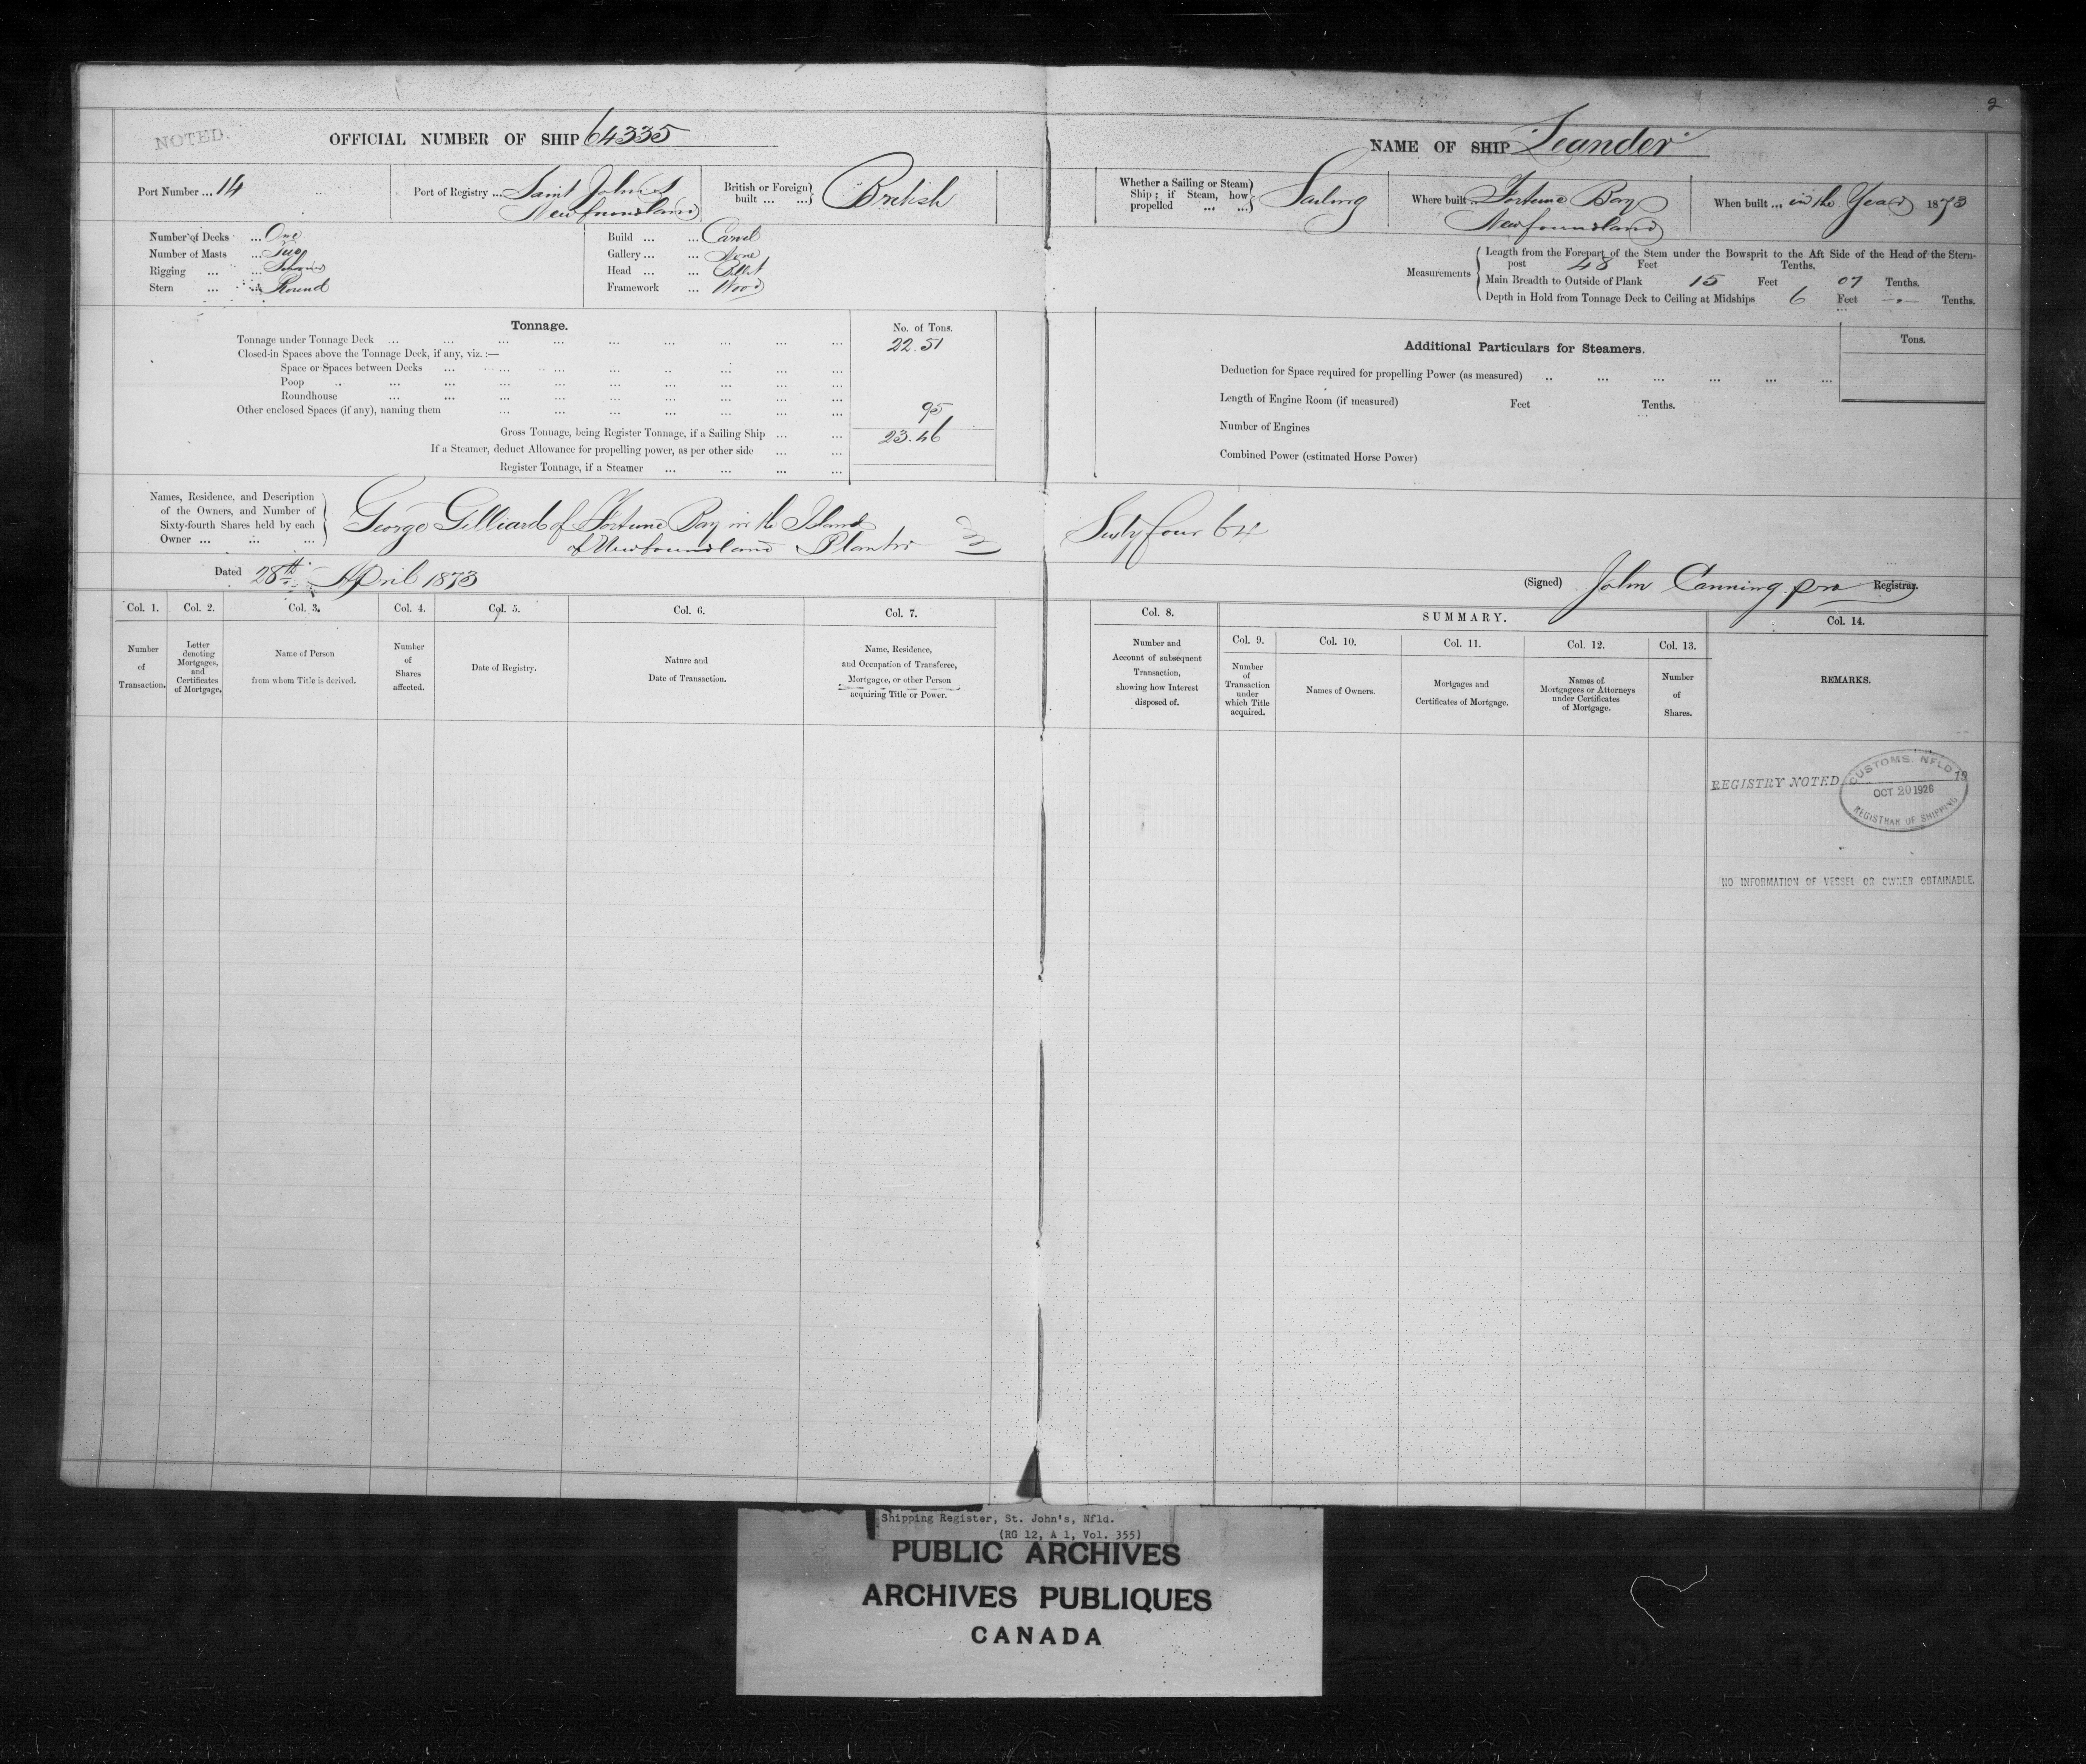 2
NOTED.
OFFICIAL NUMBER OF SHIP 64335
NAME OF SHIP "Leander"
Port Number ... 14
Port of Registry ... Saint John's
Newfoundland
British or Foreign built ... ... British
Whether a Sailing or Steam Ship; if Steam, how propelled ... ... Sailing
Where built Fortune Bay
Newfoundland
When built ... in the Year 1873
Number of Decks ... One
Number of Masts ... Two
Rigging ... ... Schooner
Stern ... ... Round
Build ... ... Carvel
Gallery ... ... None
Head ... ... Billet
Framework ... Wood
Measurements
Length from the Forepart of the Stem under the Bowsprit to the Aft Side of the Head of the Stern-
post 48 Feet Tenths.
Main Breadth to Outside of Plank 15 Feet 07 Tenths.
Depth in Hold from Tonnage Deck to Ceiling at Midships 6 Feet -"- Tenths.
Tonnage.
No. of Tons.
Tonnage under Tonnage Deck ... 22.51
Closed-in Spaces above the Tonnage Deck, if any, viz. :—
Space or Spaces between Decks ...
Poop ...
Roundhouse ...
Other enclosed Spaces (if any), naming them ... 95
Gross Tonnage, being Register Tonnage, if a Sailing Ship ... ... 23.46
If a Steamer, deduct Allowance for propelling power, as per other side ... ...
Register Tonnage, if a Steamer ... ... ... ...
Additional Particulars for Steamers.
Tons.
Deduction for Space required for propelling Power (as measured) ...
Length of Engine Room (if measured) Feet Tenths.
Number of Engines
Combined Power (estimated Horse Power)
Names, Residence, and Description
of the Owners, and Number of
Sixty-fourth Shares held by each
Owner ... ... ...
George Gilliard of Fortune Bay in the Island
of Newfoundland Planter
Sixty four 64
Dated 28th April 1873
(Signed) John Canning pro Registrar.
Col. 1.
Number
of
Transaction.
Col. 2.
Letter
denoting
Mortgages,
and
Certificates
of Mortgage.
Col. 3.
Name of Person
from whom Title is derived.
Col. 4.
Number
of
Shares
affected.
Col. 5.
Date of Registry.
Col. 6.
Nature and
Date of Transaction.
Col. 7.
Name, Residence,
and Occupation of Transferee,
Mortgagee, or other Person
acquiring Title or Power.
Col. 8.
Number and
Account of subsequent
Transaction,
showing how Interest
disposed of.
SUMMARY.
Col. 9.
Number
of
Transaction
under
which Title
acquired.
Col. 10.
Names of Owners.
Col. 11.
Mortgages and
Certificates of Mortgage.
Col. 12.
Names of
Mortgagees or Attorneys
under Certificates
of Mortgage.
Col. 13.
Number
of
Shares.
Col. 14.
REMARKS.
REGISTRY NOTED 19
CUSTOMS. NFLD
OCT 20 1926
REGISTRAR OF SHIPPING
NO INFORMATION OF VESSEL OR OWNER OBTAINABLE.
Shipping Register, St. John's, Nfld.
(RG 12, A 1, Vol. 355)
PUBLIC ARCHIVES
ARCHIVES PUBLIQUES
CANADA